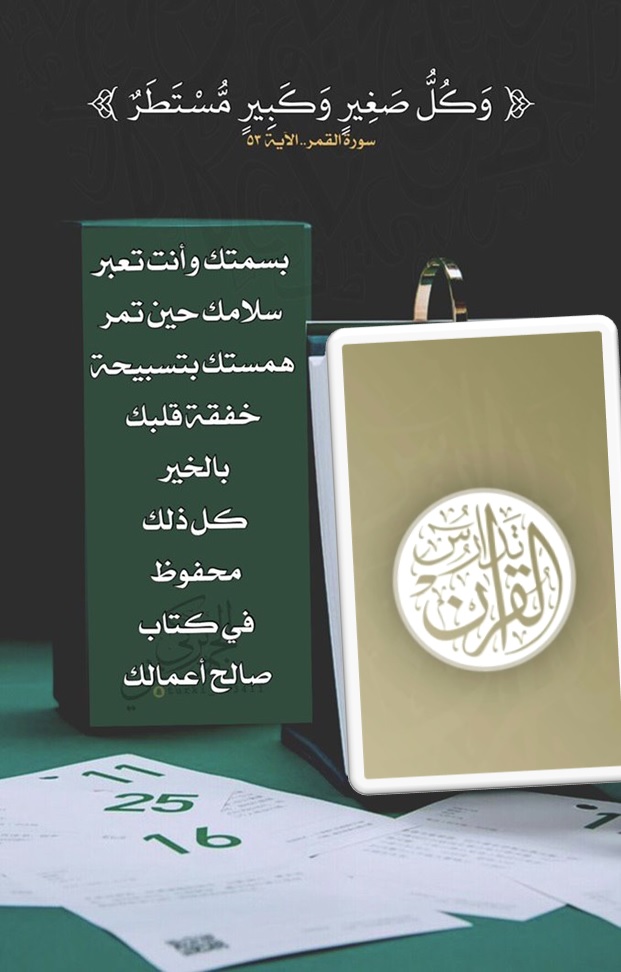 ﴿ وَكُلُّ صَغِيرٍ وَكَبِيرٍ مُّسْتَطَرٌ ﴾
سورة القمر..الآية ٥٣
بسمتك وأنت تعبر
سلامك حين تمر
همستك بتسبيحة
خفقة قلبك
بالخير
كل ذلك
محفوظ
في كتاب
صالح أعمالك
تدارس
القرآن
11
25
16